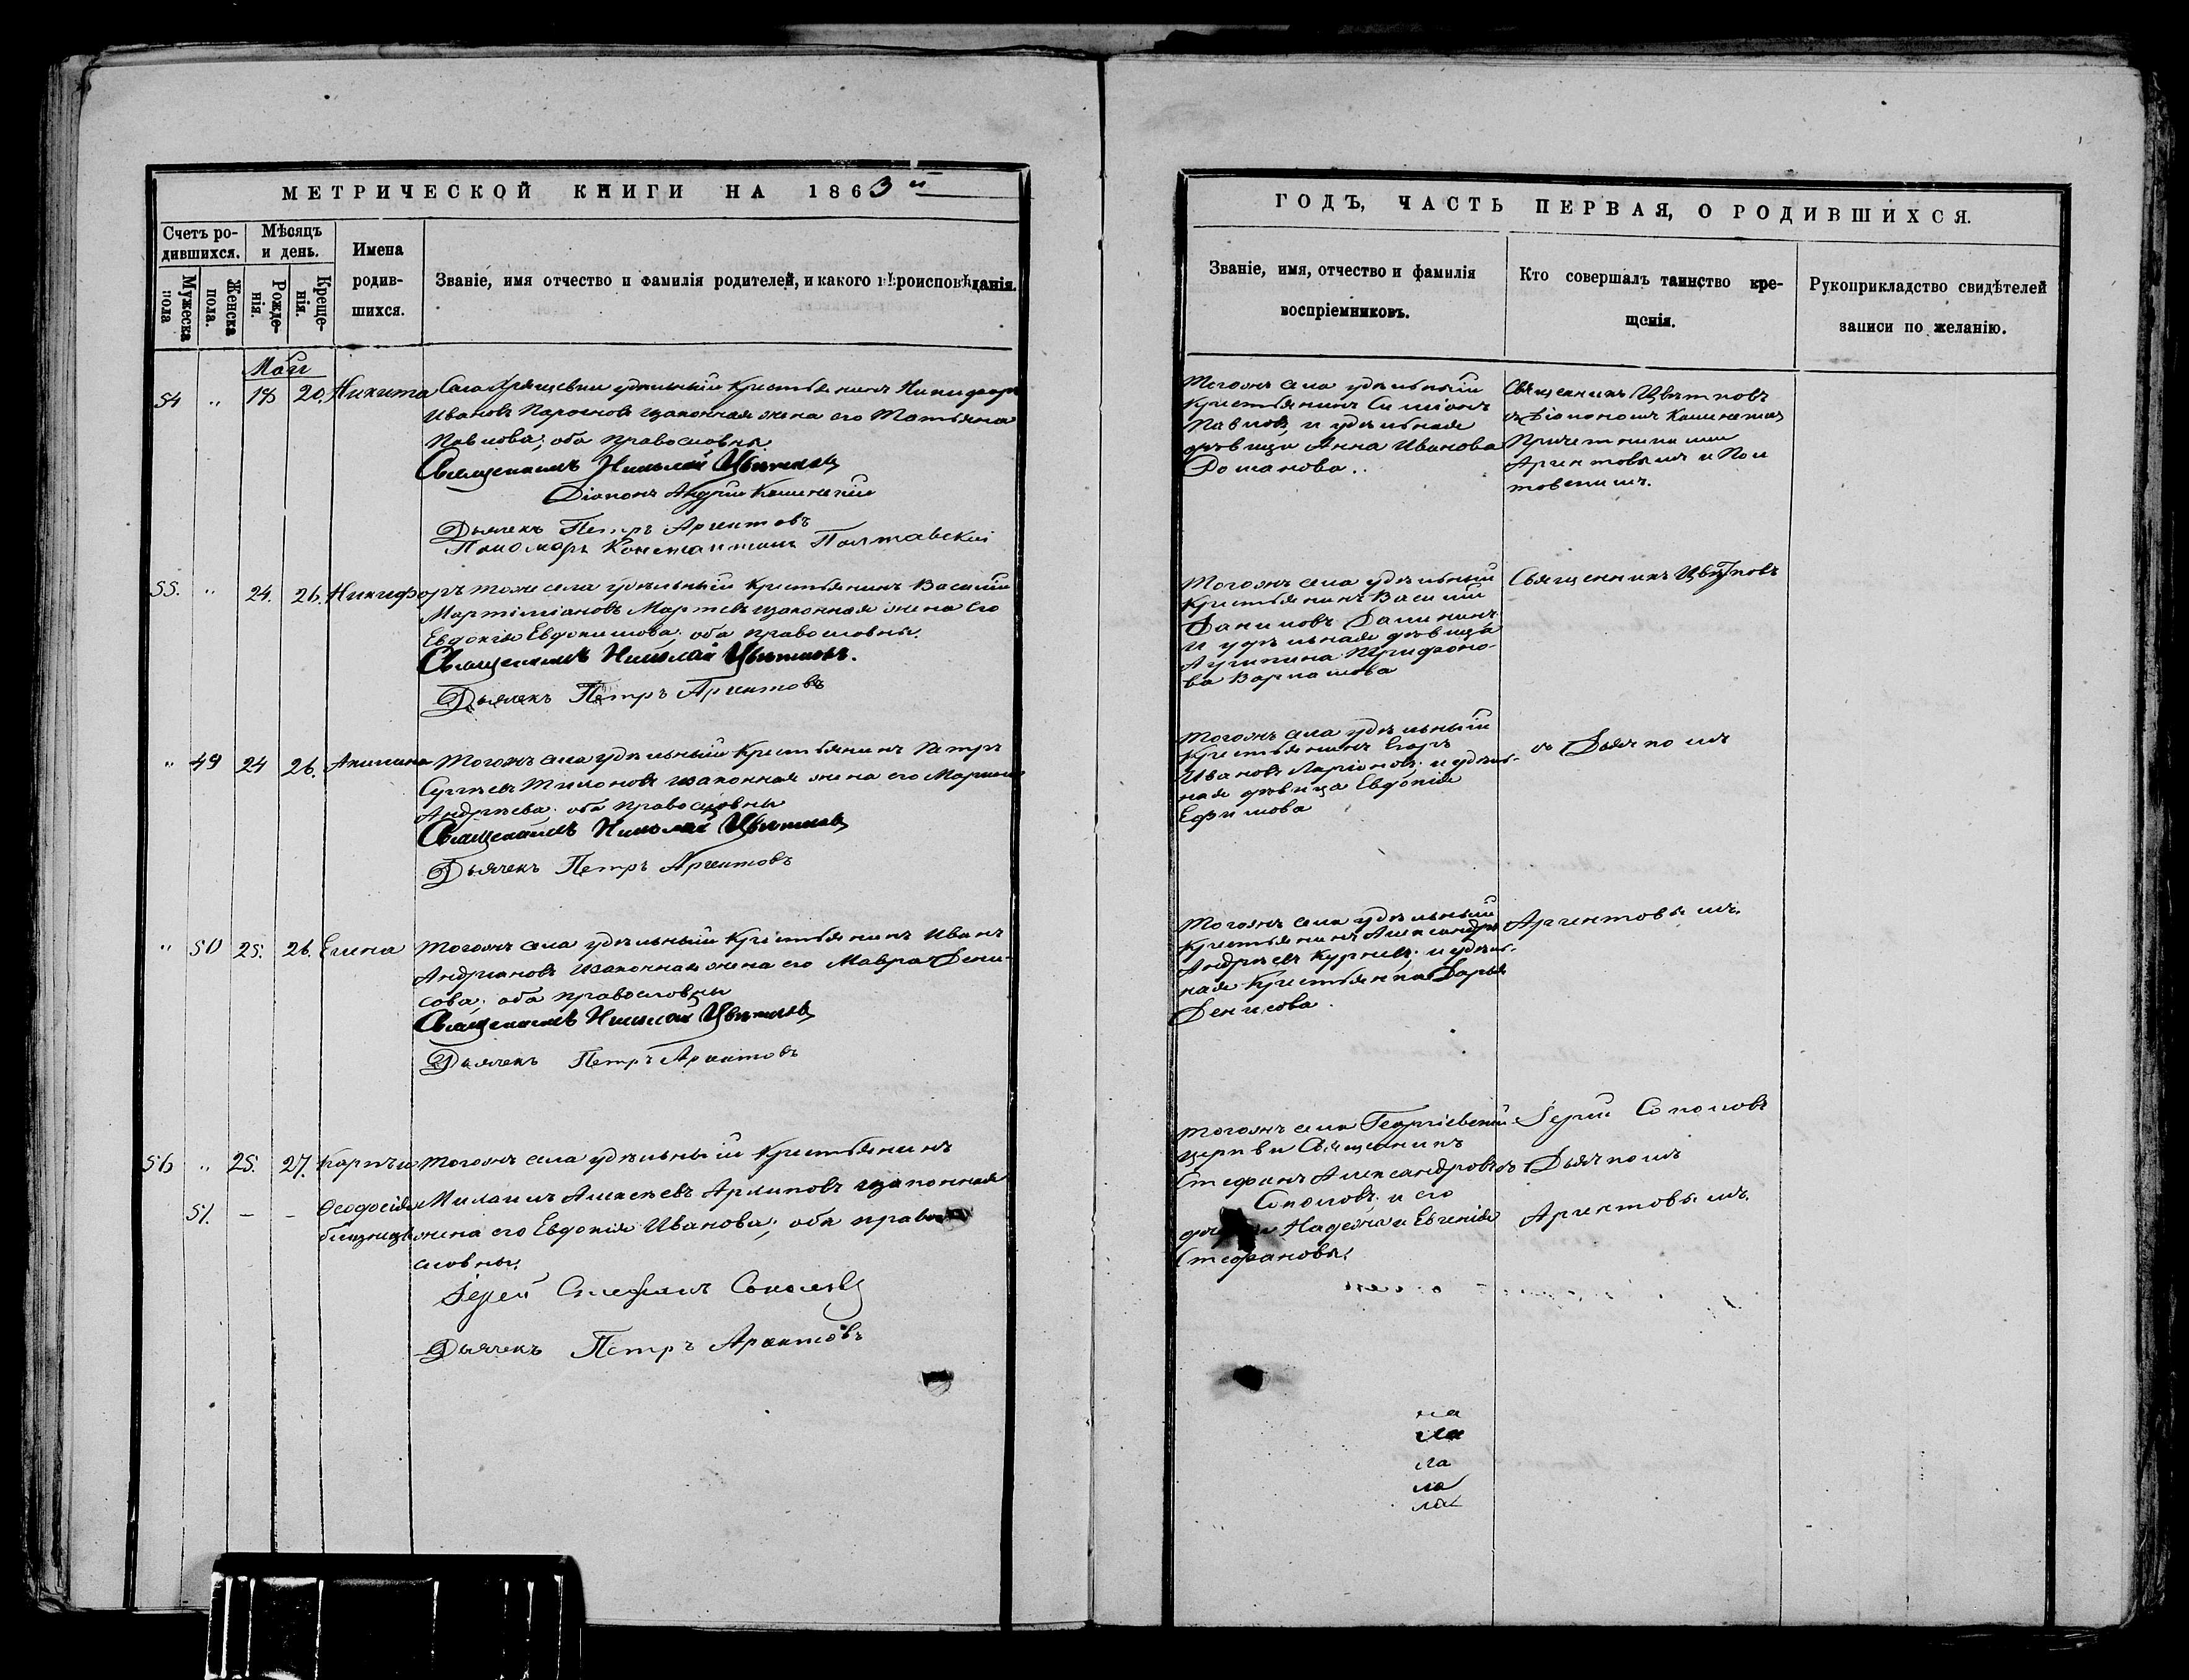 МЕТРИЧЕСКОЙ КНИГИ НА 1863 й
Счетъ ро-
дившихся.
Мѣсяцъ
и день.
Имена
родив-
шихся.
Званіе, имя отчество и фамилія родителей, и какого вѣроисповѣданія.
Мужеска
пола
Женска
пола.
Рожде-
нія.
Креще-
нія.
Маій
54 " 18 20. Никита Села удѣльный крестьянинъ Никифоръ
Ивановъ изаконная жена его Татьяна
Павлова; оба православны
Священникъ Николай Цвѣтковъ
Діаконъ Андрей
Дьячекъ Петръ Аргентовъ
Пономарь Константинъ Полтавскій
55. " 24. 26. Никифоръ тогоже села удѣльный крестьянинъ Василій
Мартиміановъ изаконная жена его
Евдокія Евдокимова; оба православны.
Священникъ Николай Цвѣтковъ.
Дьячекъ Петръ Аргентовъ
" 49 24 26. Акилина Тогожъ села удѣльный крестьянинъ Петръ
Сергѣевъ изаконная жена его
Андрѣева; оба православны
Священникъ Николай Цвѣтковъ
Дьячекъ Петръ Аргентовъ
" 50 25. 26. Елена Тогожъ села удѣльный крестьянинъ Иванъ
Андріановъ изаконная жена его Мавра Дени-
сова; оба православны
Священникъ Николай Цвѣтковъ
Дьячекъ Петръ Аргентовъ
56 " 25. 27. Карпъ и тогожъ села удѣльный крестьянинъ
51. — — Ѳеодосія Михаилъ Алексѣевъ Архиповъ изаконная
близнецы жена его Евдокія Иванова; оба право
славны.
Іерей Стефанъ Соколовъ
Дьячекъ Петръ Аргентовъ
ГОДЪ, ЧАСТЬ ПЕРВАЯ, О РОДИВШИХСЯ.
Званіе, имя, отчество и фамилія
воспріемниковъ.
Кто совершалъ таинство кре-
щенія.
Рукоприкладство свидѣтелей
записи по желанію.
Тогожъ села удѣльный
крестьянинъ Симіонъ
Павловъ, и удѣльная
дѣвица Анна Иванова
Священникъ Цвѣтковъ
съ Діакономъ
Причетниками
Аргентовымъ и Пол
тавскимъ.
Тогожъ села удѣльный
крестьянинъ Василій
Даниловъ
и удѣльная дѣвица
Агрипина Трифоно-
ва
Священникъ Цвѣтковъ
Тогожъ села удѣльный
крестьянинъ Егоръ
Ивановъ Ларіоновъ; и удѣль-
ная дѣвица Евдокія
Ефимова
съ Дьячкомъ
Тогожъ села удѣльный
крестьянинъ Александръ
Андрѣевъ и удѣль-
ная крестьянка Дарья
Денисова.
Аргентовымъ.
тогожъ села Георгіевской
церкви Священникъ
Стефанъ Александровъ
Соколовъ; и его
Надежда и Евгенія
Стефановы.
Іерей Соколовъ
съ Дьячкомъ
Аргентовымъ.